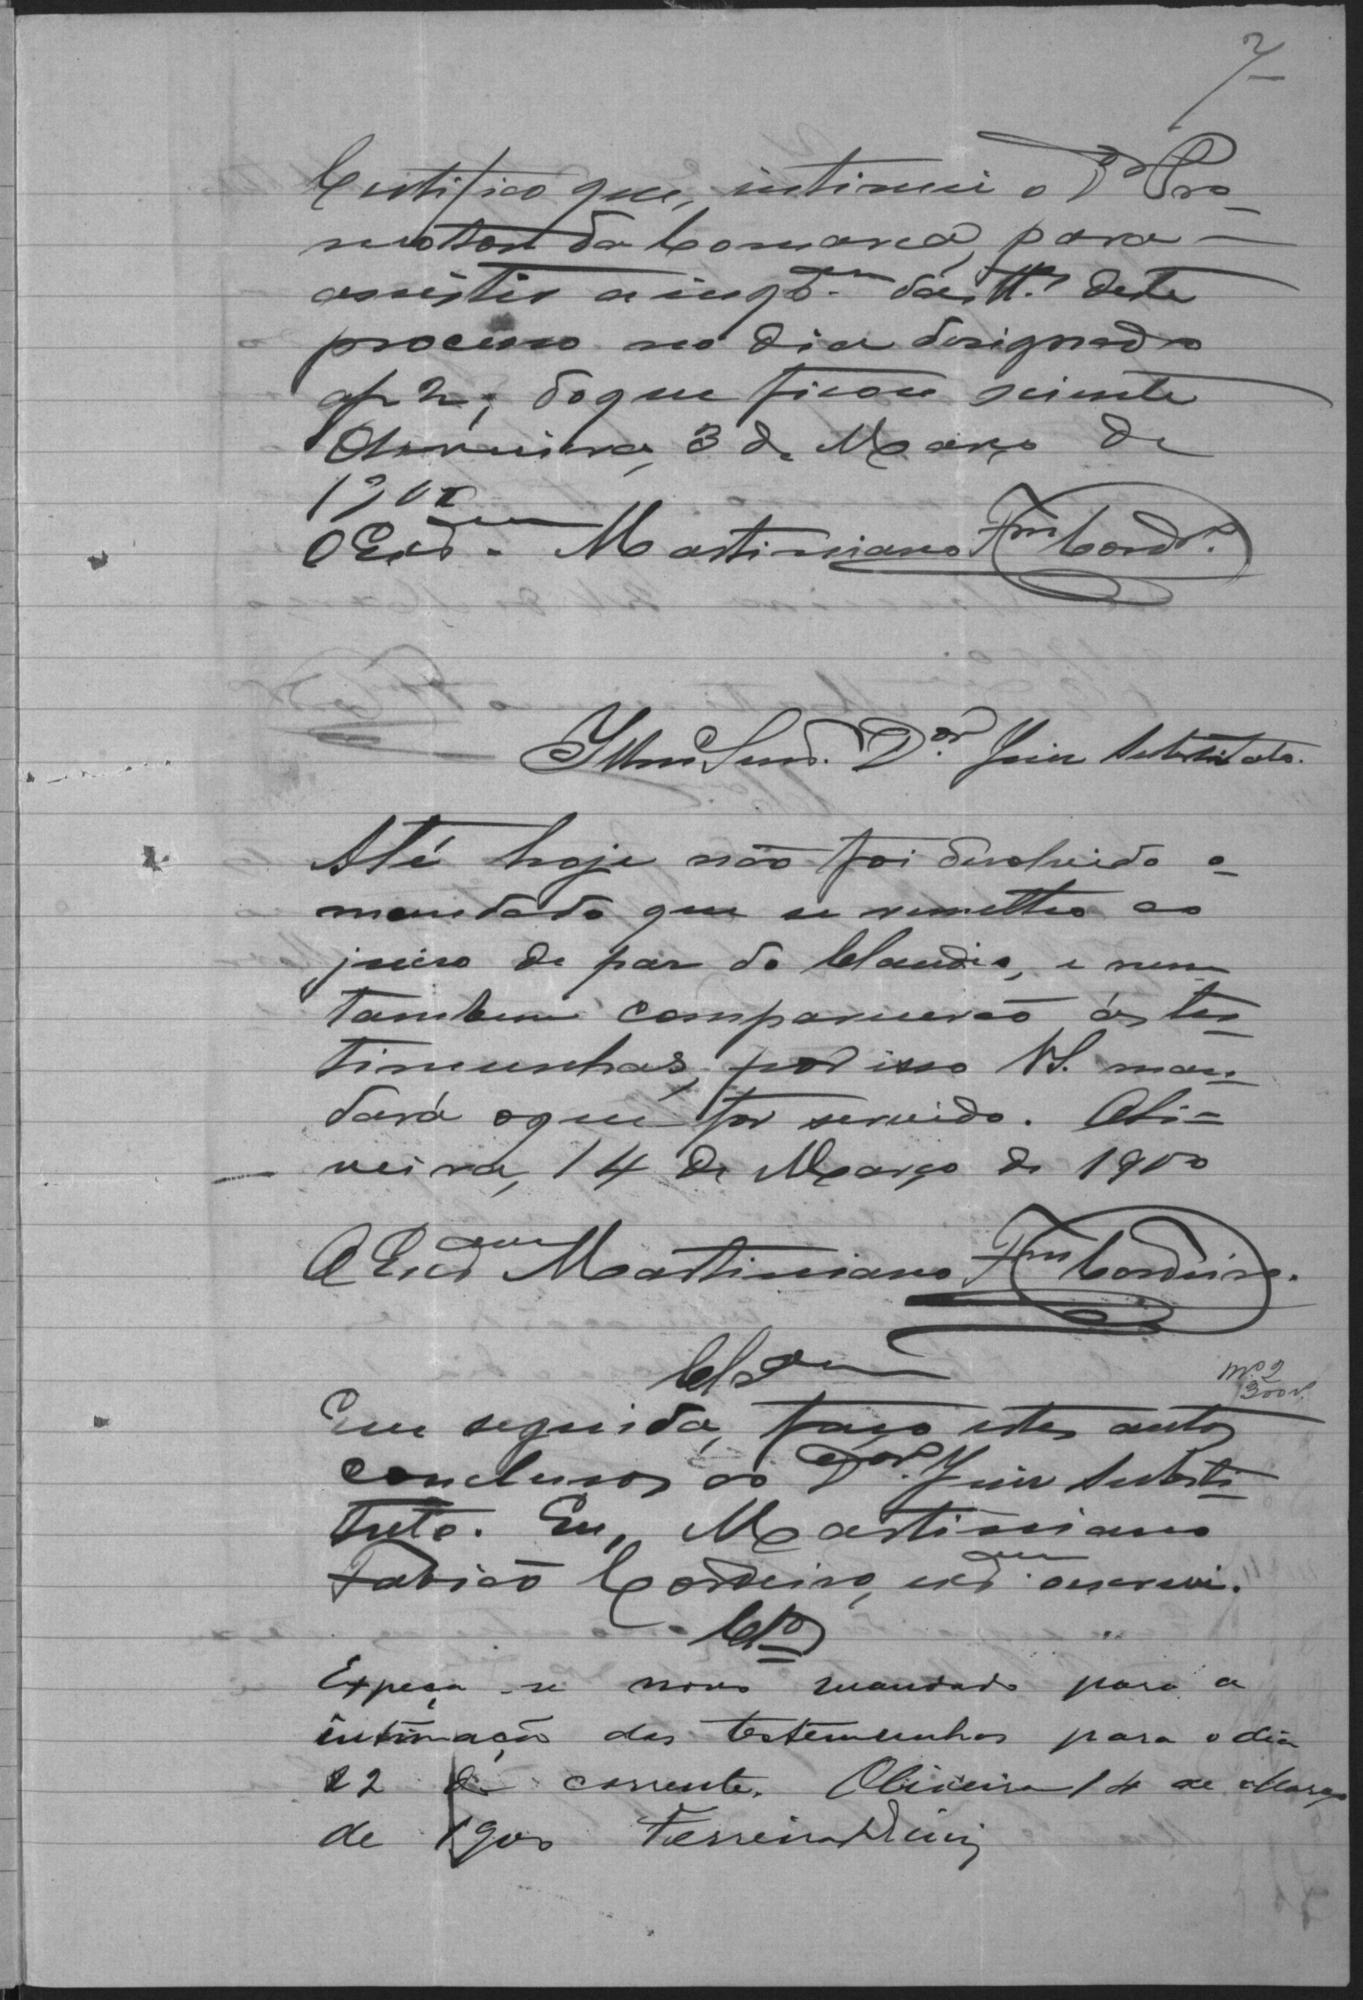 7
Certifico que, intimei o Dr Pro-
motor da Comarca, para
assistir a inqdam das tt.as deste
processo no dia designado
af 2, do que ficou sciente
Oliveira, 3 de Março de
1900
O Escdam. Martiniano Fam Cordro.
Illmo Snr. Dor Juiz Substituto.
Até hoje não foi devolvido o
mandado que se remetteo ao
juiso de paz do Claudio, e nem
tambem comparecerão ás tes-
timunhas, por isso V.S. man-
dará o que for servido. Oli-
veira, 14 de Março de 1900
O Escdam Martiniano Fam Cordeiro.
Clsam
mo. 2
300 r.
Em seguida, faço estes autos
conclusos ao Dor. Juiz Substi-
tuto. Eu, Martiniano
Fabião Cordeiro, escdam oescrevi.
Clso
Expeça-se novo mandado para a
intimação das testemunhas para o dia
22 do corrente. Oliveira 14 de Março
de 1900 Ferreira Diniz